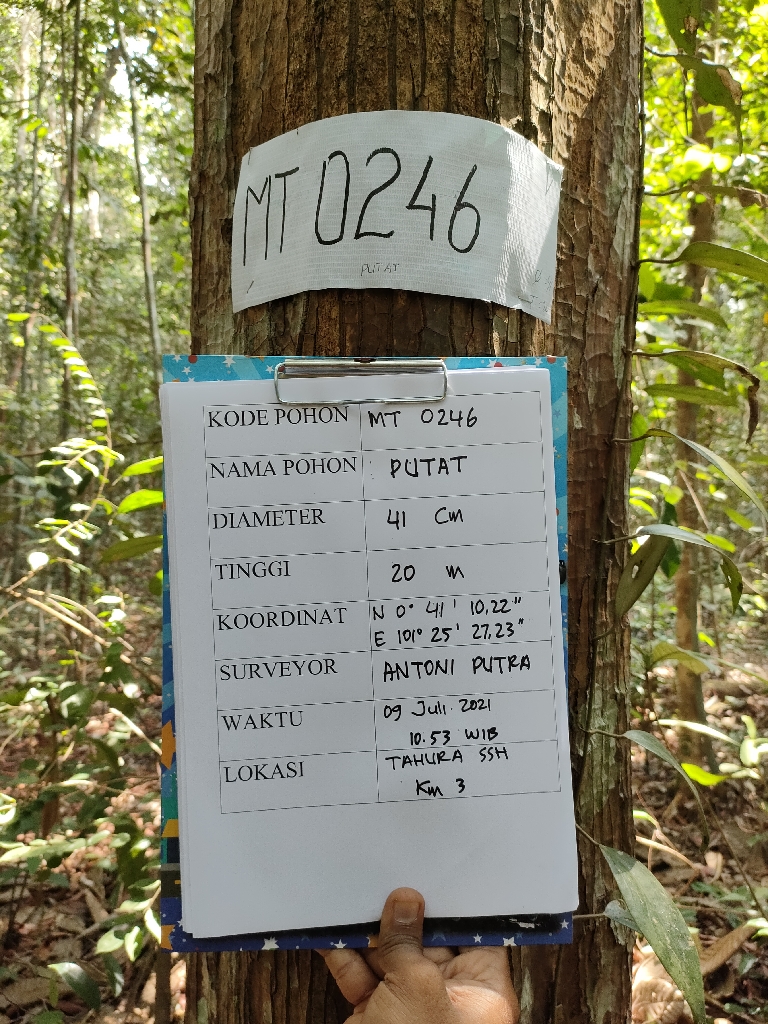 MT 0246
PUTAT
KODE POHON MT 0246
NAMA POHON : PUTAT
DIAMETER 41 Cm
TINGGI 20 m
KOORDINAT N 0° 41' 10,22"
E 101° 25' 27,23"
SURVEYOR ANTONI PUTRA
WAKTU 09 Juli 2021
10.53 WIB
LOKASI TAHURA SSH
Km 3